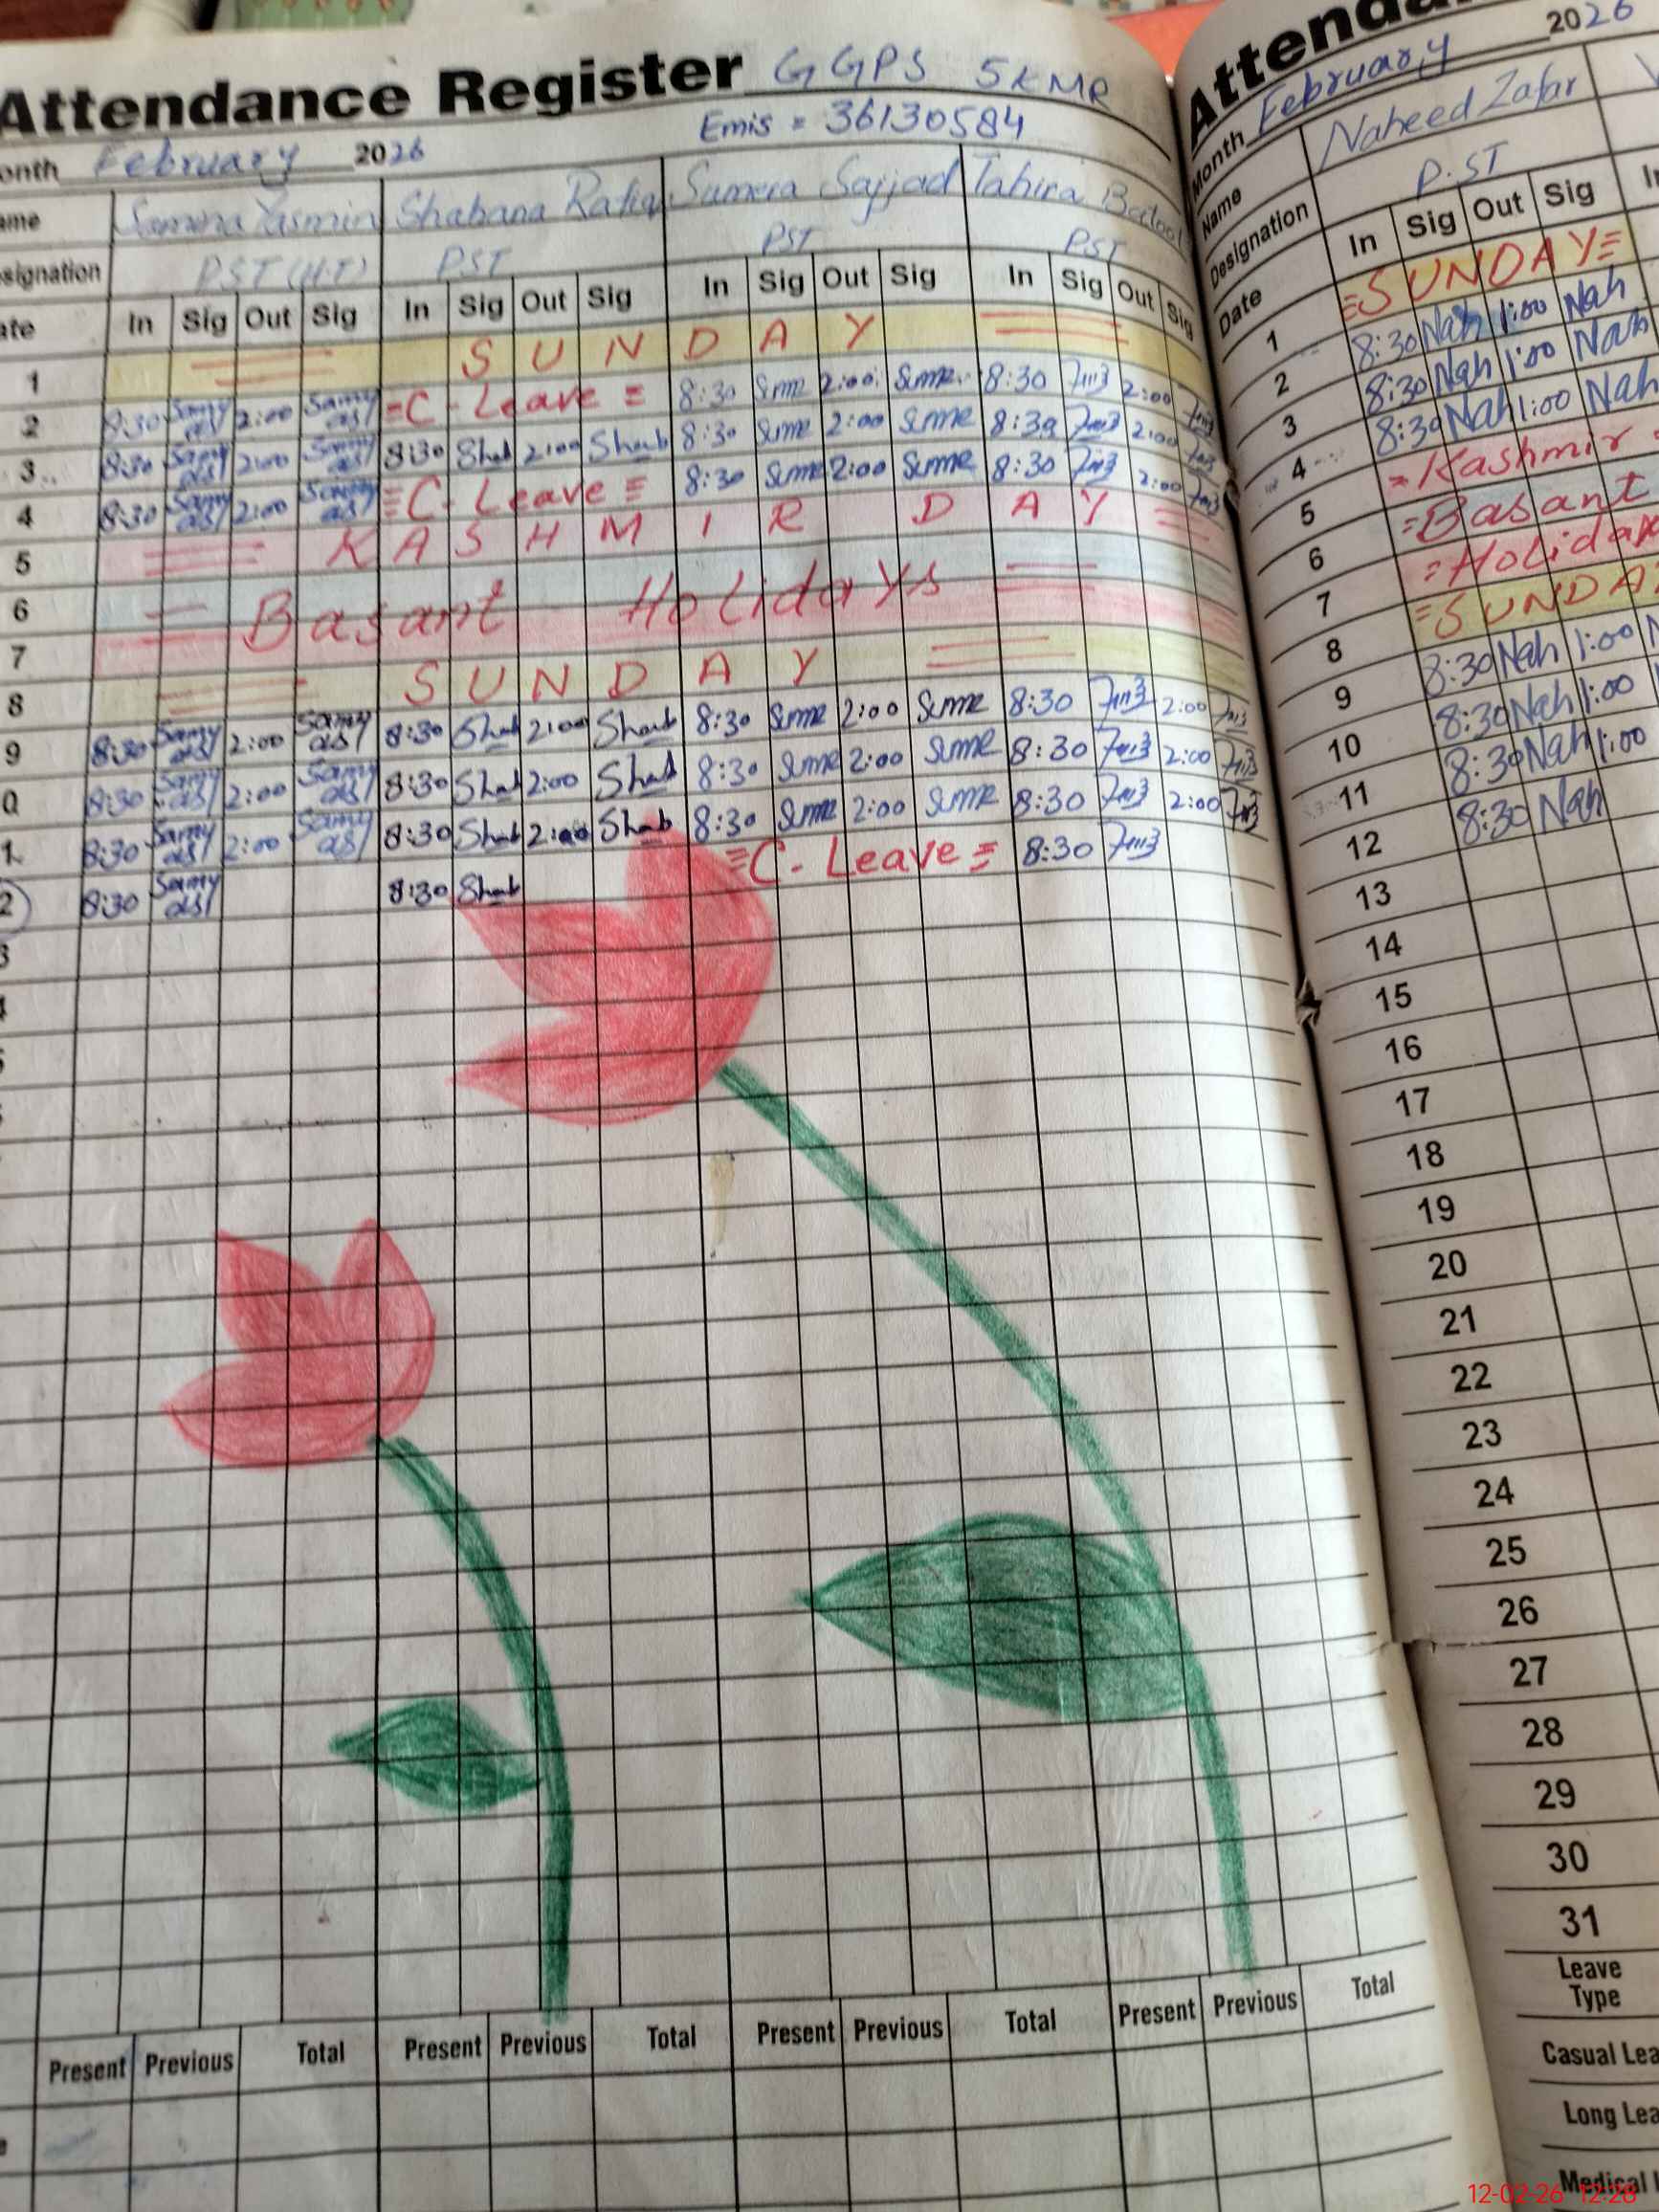 Attendance Register GGPS 5KMR
Emis = 36130584
onth February 2026
ame Samina Yasmin Shabana Rafiq Sumera Sajjad Tahira Batool
esignation PST (H.T) PST PST PST
ate In Sig Out Sig In Sig Out Sig In Sig Out Sig In Sig Out Sig
1 = S U N D A Y =
2 8:30 Samy as 2:00 Samy as = C - Leave = 8:30 Sume 2:00 Sume 8:30 2:00
3 8:30 Samy as 2:00 Samy as 8:30 Shab 2:00 Shab 8:30 Sume 2:00 Sume 8:30 2:00
4 8:30 Samy as 2:00 Samy as = C - Leave = 8:30 Sume 2:00 Sume 8:30 2:00
5 = K A S H M I R D A Y =
6 = Basant Holidays =
7
8 = S U N D A Y =
9 8:30 Samy as 2:00 Samy as 8:30 Shab 2:00 Shab 8:30 Sume 2:00 Sume 8:30 2:00
0 8:30 Samy as 2:00 Samy as 8:30 Shab 2:00 Shab 8:30 Sume 2:00 Sume 8:30 2:00
1 8:30 Samy as 2:00 Samy as 8:30 Shab 2:00 Shab 8:30 Sume 2:00 Sume 8:30 2:00
2 8:30 Samy as 8:30 Shab = C - Leave = 8:30
3
Present Previous Total Present Previous Total Present Previous Total Present Previous Total
Attenda
Month February 2026
Name Naheed Zafar
Designation P.ST
Date In Sig Out Sig In
1 = SUNDAY =
2 8:30 Nah 1:00 Nah
3 8:30 Nah 1:00 Nah
4 8:30 Nah 1:00 Nah
5 = Kashmir
6 = Basant
7 = Holiday
8 = SUNDA
9 8:30 Nah 1:00
10 8:30 Nah 1:00
11 8:30 Nah 1:00
12 8:30 Nah
13
14
15
16
17
18
19
20
21
22
23
24
25
26
27
28
29
30
31
Leave
Type
Casual Lea
Long Lea
Medical
12-02-26 12:28